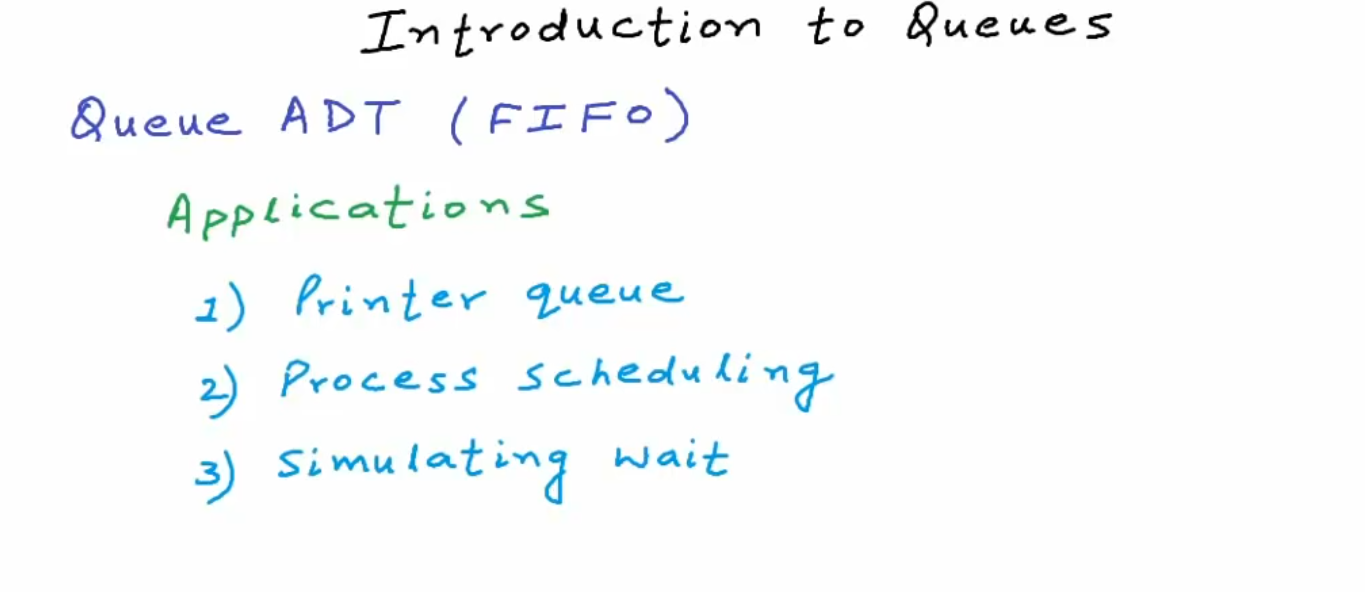 Introduction to Queues
Queue ADT (FIFO)
Applications
1) Printer queue
2) Process scheduling
3) Simulating wait